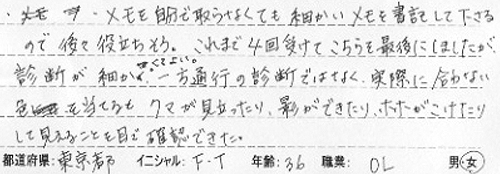 ・メモ ・メモを自分で取らなくても細かいメモを書記して下さる
ので後々役立ちそう。これまで4回受けてこちらを最後にしましたが、
診断が細かくてよい。一方通行の診断ではなく、実際に合わない
色を当てるとクマが見立ったり、影ができたり、ホホがこけたり
して見えることを目で確認できた。
都道府県:東京都 イニシャル:F-T 年齢:36 職業:OL 男・女